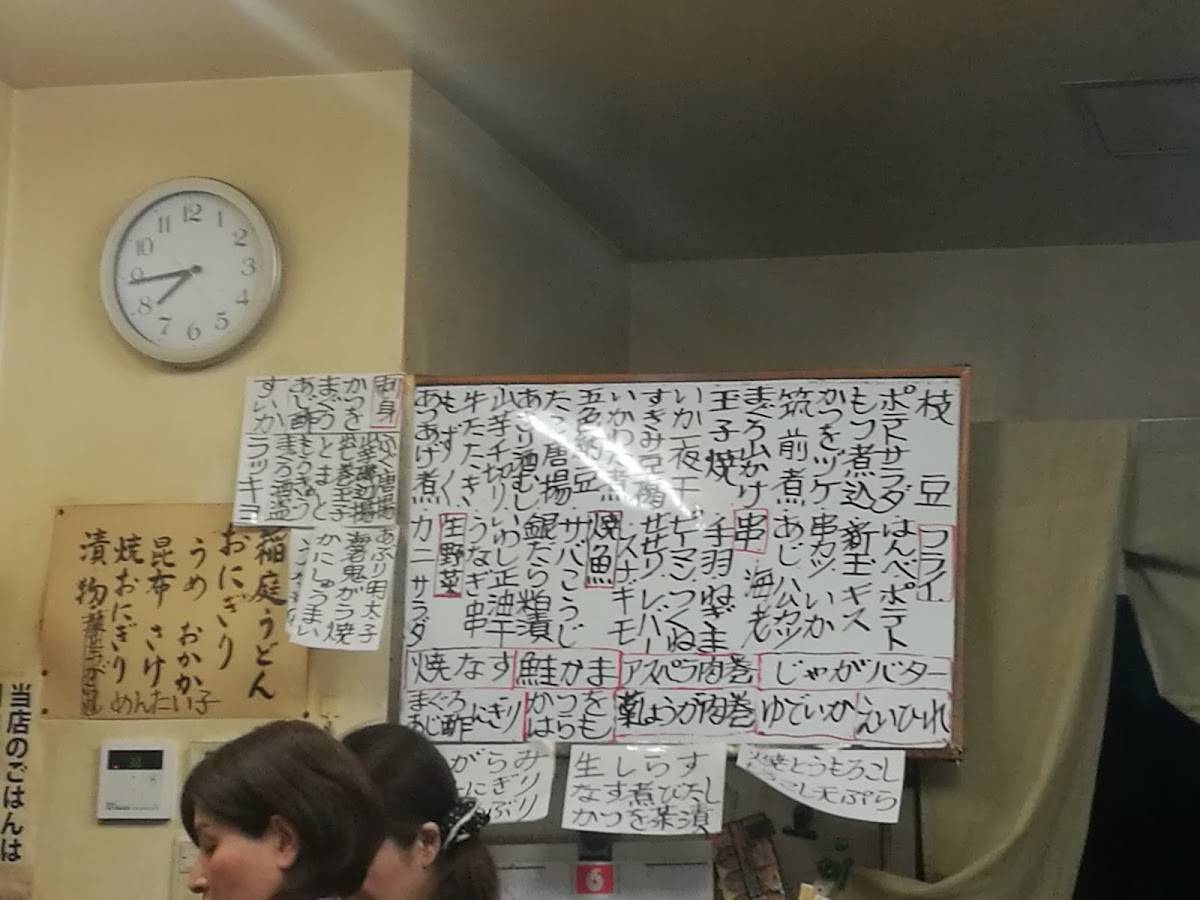 枝豆
ポテトサラダ
もつ煮込
かつをヅケ
筑前煮
まぐろ山かけ
玉子焼
いか一夜干
すぎみ豆腐
いかわた煮
五色納豆
たこ唐揚
あさり酒むし
山芋千切り
牛たたき
もずく
あつあげ煮
フライ
はんぺん ポテト
新玉 キス
串カツ いか
あじ ハムカツ
串 海老
手羽 ねぎま
ピーマン つくね
ササリ レバー
スナギモ
焼魚
サバこうじ
銀だら粕漬
いわし正油干
うなぎ串
生野菜
カニサラダ
じゃがバター
アスペラ肉巻
鮭かま
焼なす
えいひれ
ゆでいか
葉しょうが肉巻
かつを
はらも
まぐろ
あじ酢にぎり
刺身
かつを
まぐろ
あじ酢
すいか
ふぐ唐揚
山芋磯辺揚
出し巻玉子
とまと
もろきゅう
まぐろ酒盗
ラッキョ
あぶり明太子
海老鬼がら焼
かにしゅうまい
稲庭うどん
おにぎり
うめ おかか
昆布 さけ
めんたい子
焼おにぎり
漬物
生しらす
なす煮びたし
かつを茶漬
焼とうもろこし
天ぷら
当店のごはんは
12
1
2
3
4
5
6
7
8
9
10
11
6